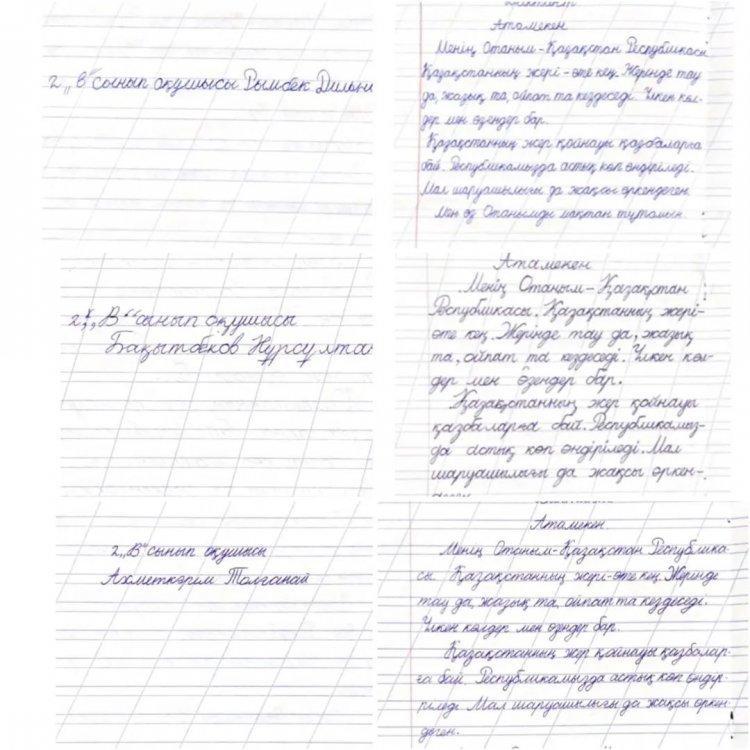 2 „В" сынып оқушысы Рымбек Дильна
Атамекен
Менің Отаным – Қазақстан Республикасы
Қазақстанның жері – өте кең. Жерінде тау
да, жазық та, ойпат та кездеседі. Үлкен көл-
дер мен өзендер бар.
Қазақстанның жер қойнауы қазбаларға
бай. Республикамызда астық көп өндіріледі.
Мал шаруашылығы да жақсы өркендеген.
Мен өз Отанымды мақтан тұтамын.
2 „В" сынып оқушысы
Бақытбеков Нұрсұлтан
Атамекен
Менің Отаным – Қазақстан
Республикасы. Қазақстанның жері-
өте кең. Жерінде тау да, жазық
та, ойпат та кездеседі. Үлкен көл-
дер мен өзендер бар.
Қазақстанның жер қойнауы
қазбаларға бай. Республикамыз-
да астық көп өндіріледі. Мал
шаруашылығы да жақсы өркен-
2 „В" сынып оқушысы
Ахметкәрім Толғанай
Атамекен
Менің Отаным – Қазақстан Республика-
сы. Қазақстанның жері – өте кең. Жерінде
тау да, жазық та, ойпат та кездеседі.
Үлкен көлдер мен өзендер бар.
Қазақстанның жер қойнауы қазбалар-
ға бай. Республикамызда астық көп өндір-
ріледі. Мал шаруашылығы да жақсы өркен-
деген.